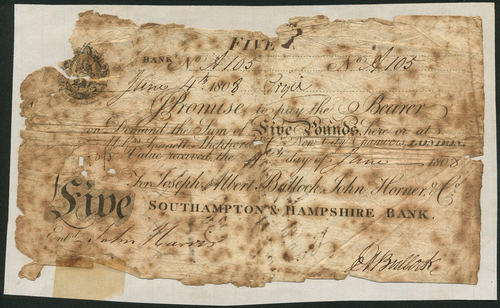 FIVE
BANK No A105 No A105
June 4th 1808
I Promise to pay the Bearer
on Demand the Sum of Five Pounds, here or at
New City Chambers LONDON
Value received the 4th day of June 1808
For Joseph Albert Bullock, John Horner, & Co
Five
SOUTHAMPTON & HAMPSHIRE BANK.
Entd John
JABullock